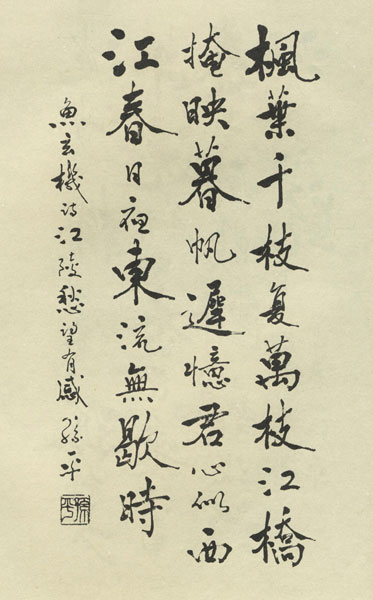 楓葉千枝复萬枝江橋
掩映暮帆遲憶君心似西
江春日夜東流無歇時
魚玄機詩江陵愁望有感 孫平
孫平